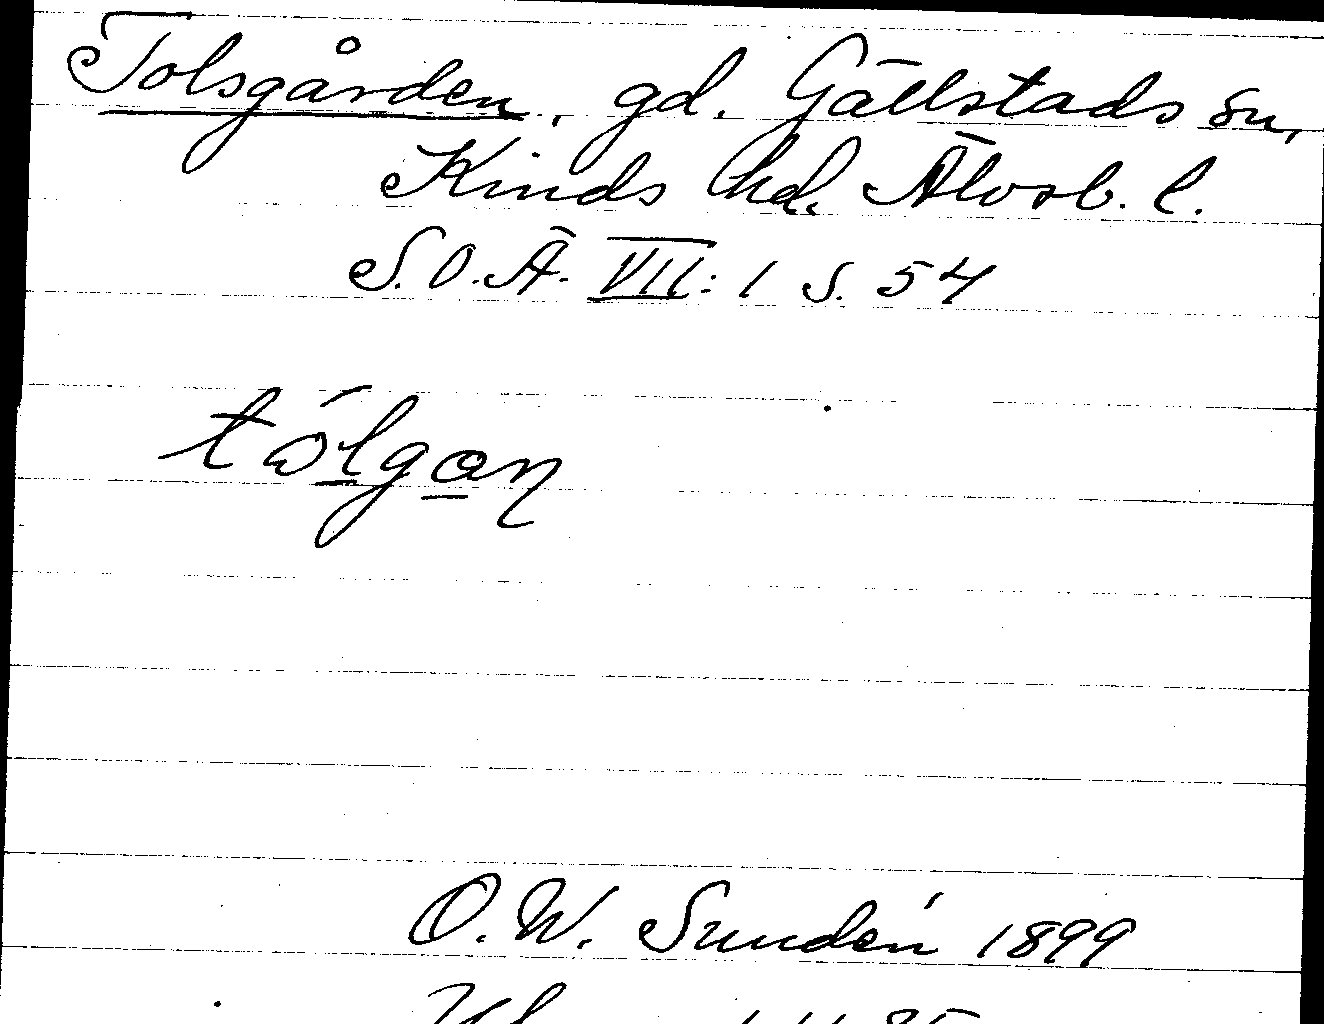 Tolsgården, gd. Gällstads sn,
Kinds hd. Älvsb. l.
S.O.Ä. VII: 1 s. 54
tólgan
O.W. Sundén 1899